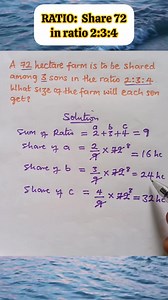 RATIO: Share 72
in ratio 2:3:4
A 72 hectare farm is to be shared
among 3 sons in the ratio 2:3:4
What size of the farm will each son
get?
Solution
a b c
Sum of Ratio = 2+3+4 = 9
Share of a = 2/9 × 72 8
= 16 hc
Share of b = 3/9 × 72 8
= 24 hc
Share of c = 4/9 × 72 8 = 32 hc